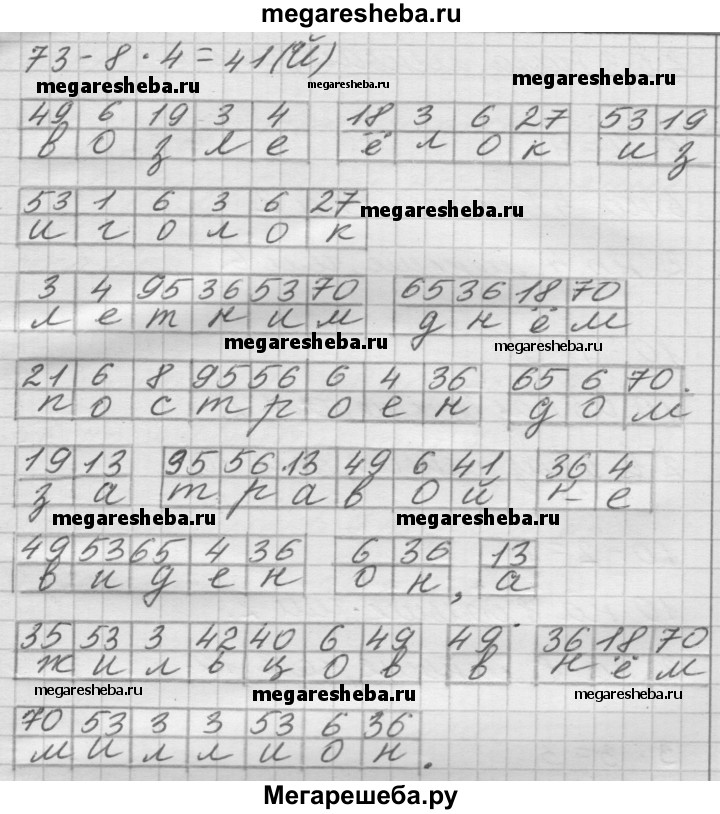 megaresheba.ru
73 - 8 · 4 = 41 (й)
megaresheba.ru megaresheba.ru megaresheba.ru
49 6 19 3 4 18 3 6 27 53 19
в о з л е ё л о к и з
53 1 6 3 6 27
и г о л о к
megaresheba.ru
3 4 95 36 53 70 65 36 18 70
л е т н и м д н ё м
megaresheba.ru megaresheba.ru
21 6 8 95 56 6 4 36 65 6 70.
п о с т р о е н д о м
19 13 95 56 13 49 6 41 36 4
з а т р а в о й н е
megaresheba.ru megaresheba.ru
49 53 65 4 36 6 36 13
в и д е н о н , а
35 53 3 42 40 6 49 49 36 18 70
ж и л ь ц о в в н ё м
megaresheba.ru megaresheba.ru megaresheba.ru
70 53 3 3 53 6 36
м и л л и о н .
Мегарешеба.ру